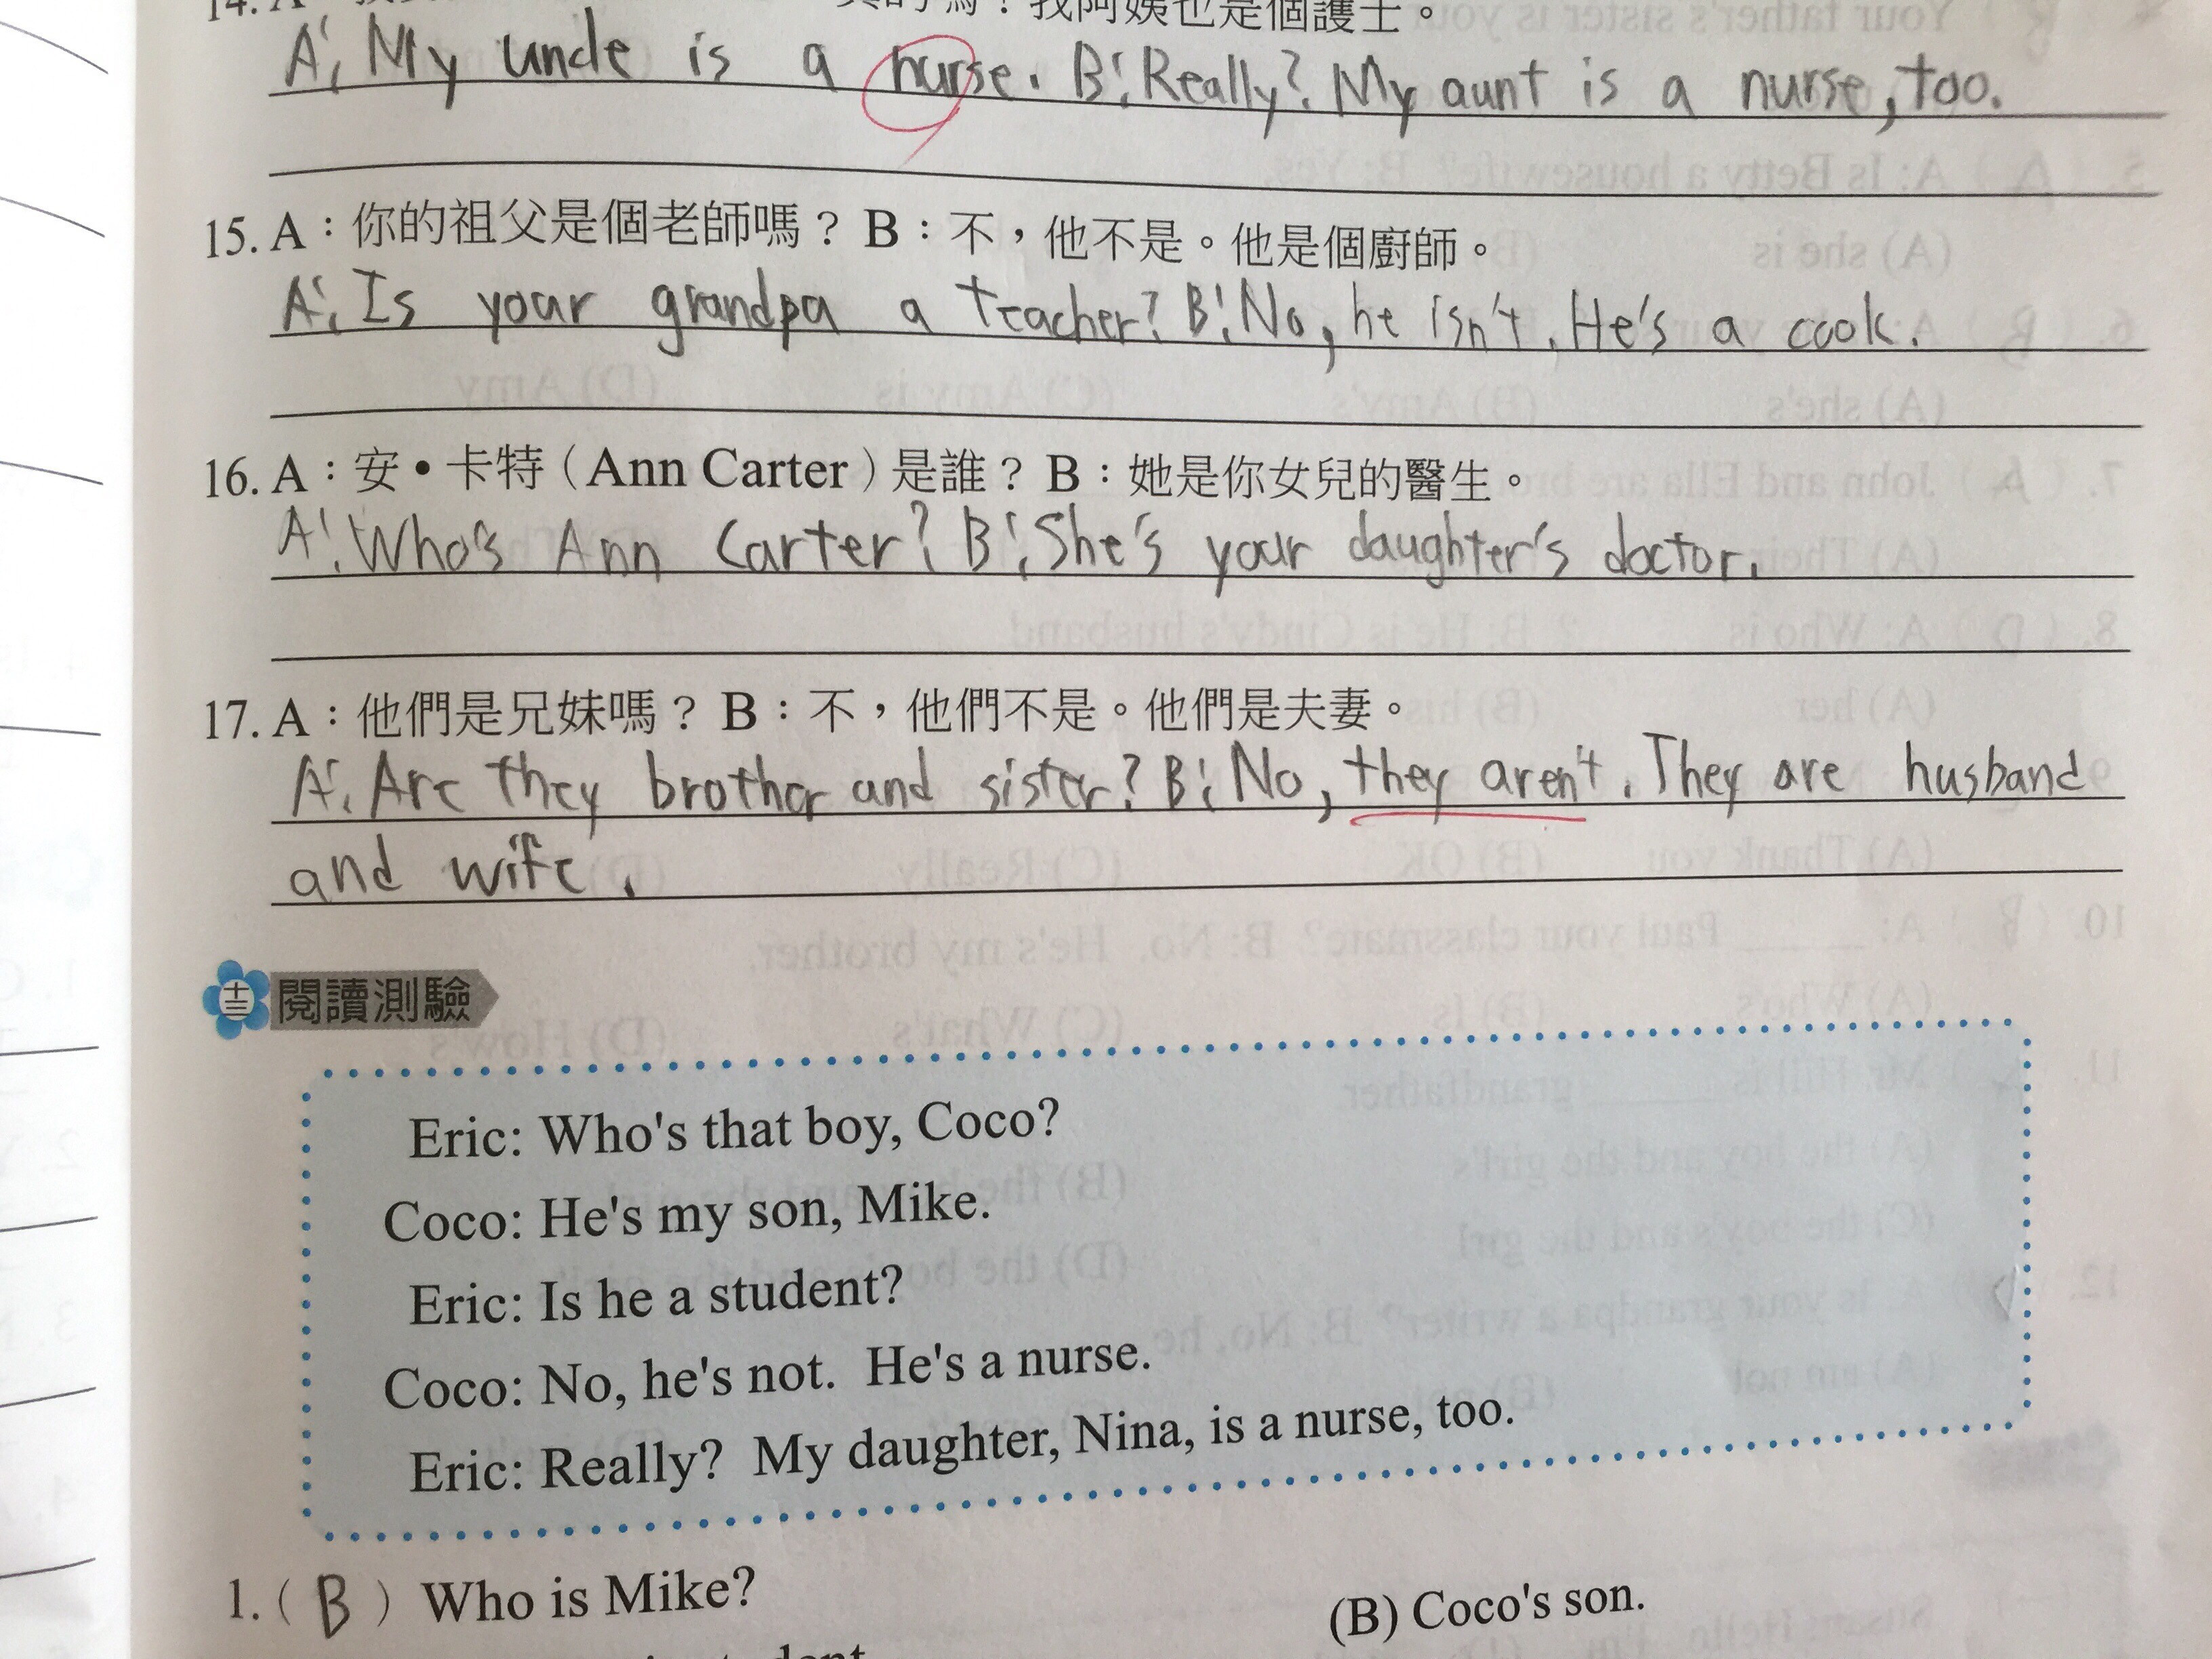 14. A
嗎？我阿姨也是個護士。
A: My uncle is a nurse. B: Really? My aunt is a nurse, too.
15. A：你的祖父是個老師嗎？ B：不，他不是。他是個廚師。
A: Is your grandpa a teacher? B: No, he isn't. He's a cook.
16. A：安•卡特（Ann Carter）是誰？ B：她是你女兒的醫生。
A: Who's Ann Carter? B: She's your daughter's doctor.
17. A：他們是兄妹嗎？ B：不，他們不是。他們是夫妻。
A: Are they brother and sister? B: No, they aren't. They are husband
and wife.
十三 閱讀測驗
Eric: Who's that boy, Coco?
Coco: He's my son, Mike.
Eric: Is he a student?
Coco: No, he's not. He's a nurse.
Eric: Really? My daughter, Nina, is a nurse, too.
1. ( B ) Who is Mike?
(B) Coco's son.